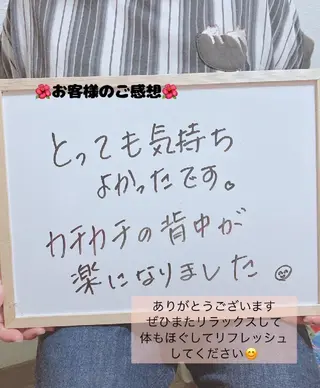 🌺お客様のご感想🌺
とっても気持ち
よかったです。
カチカチの背中が
楽になりました
ありがとうございます
ぜひまたリラックスして
体もほぐしてリフレッシュ
してください😊